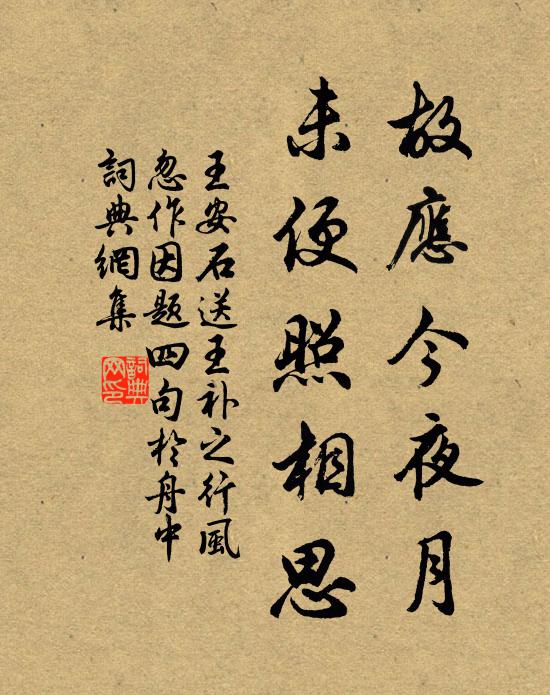 故應今夜月
未便照相思
王安石送王补之行風
忽作因题四句於舟中
詞典網集
詞典網印